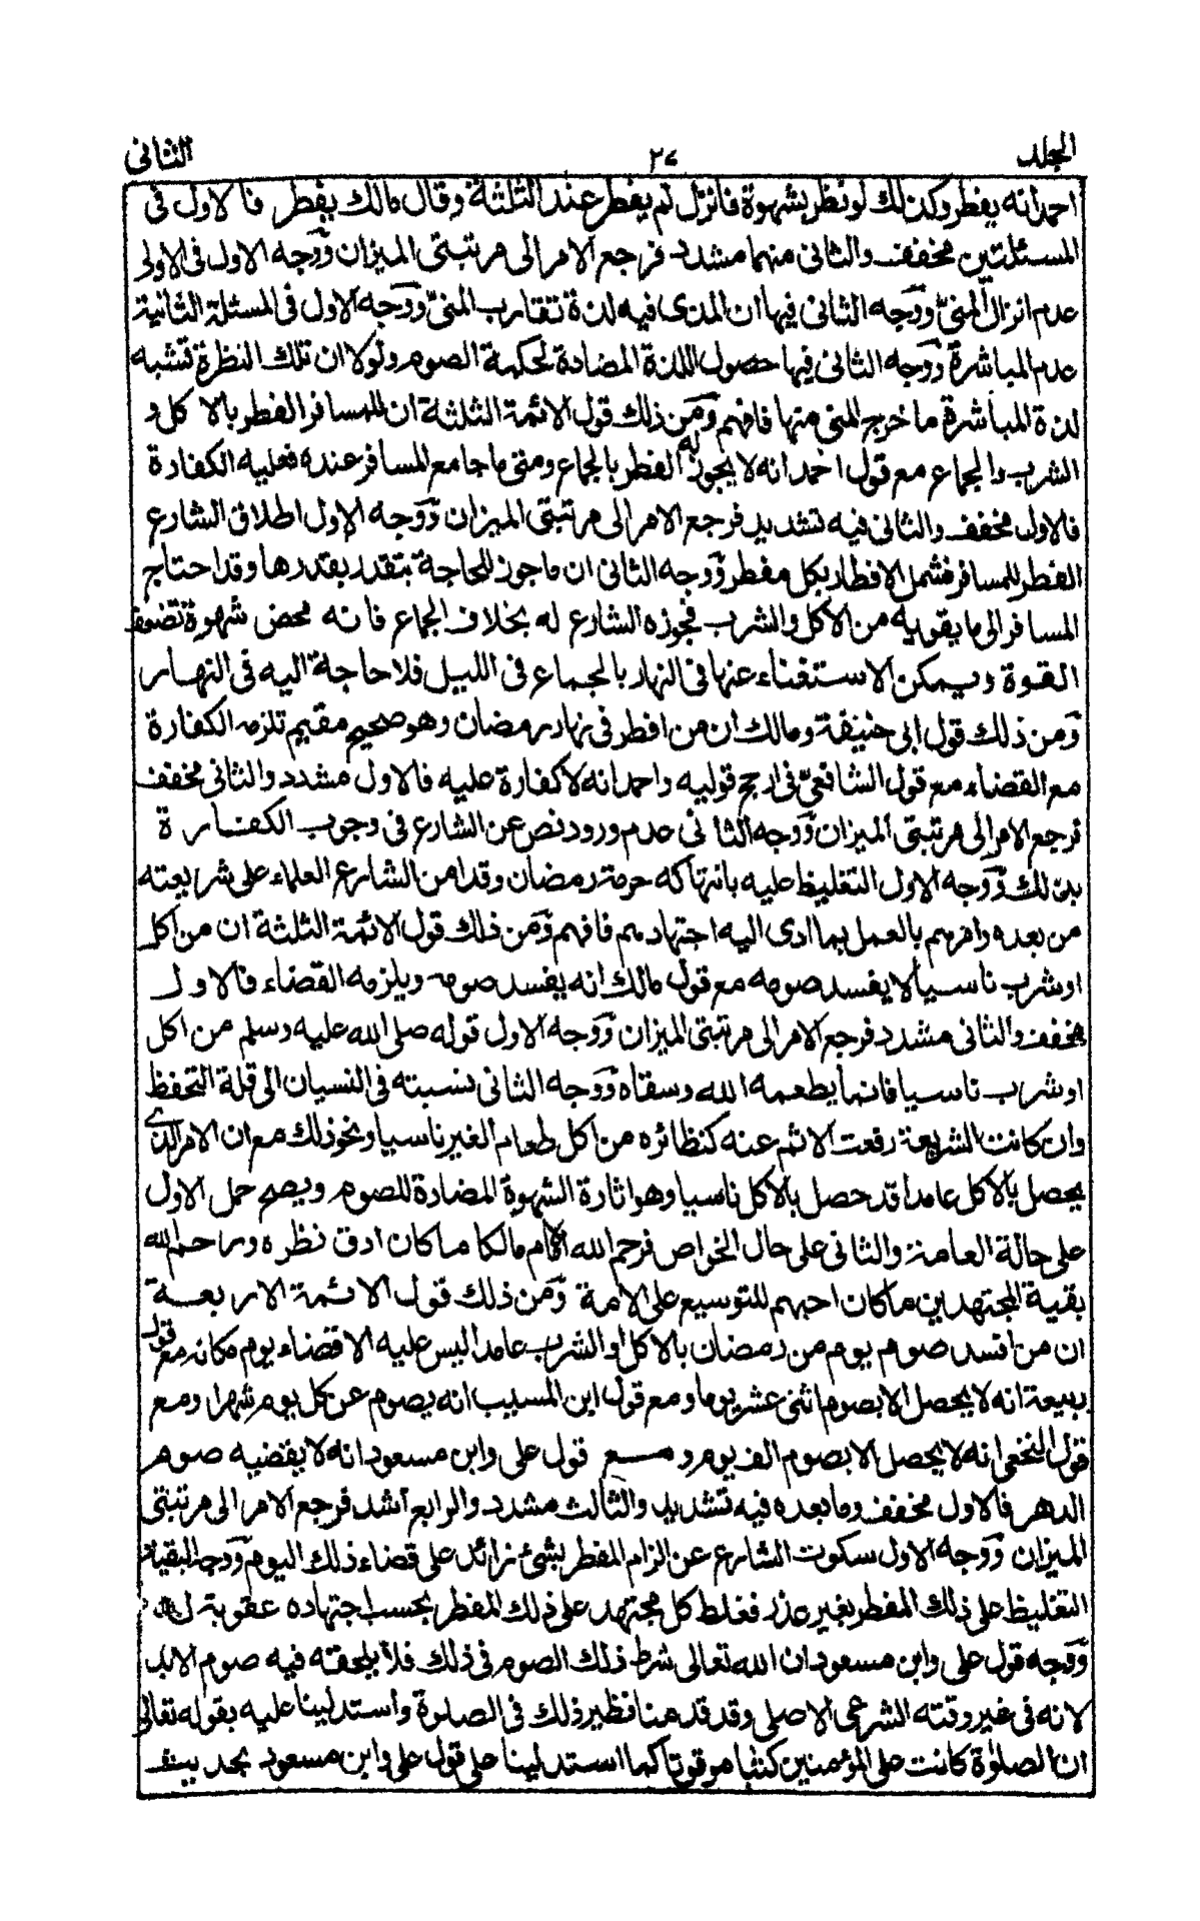 المجلد ٢٧ الثاني
احمد انه يفطر وكذلك لو نظر بشهوة فانزل لم يفطر عند الثلثة وقال مالك يفطر فالاول في
المسئلتين مخفف والثاني منهما مشدد فرجع الامر الى مرتبتي الميزان ووجه الاول في الاولى
عدم انزال المنيّ ووجه الثاني فيها ان المذى فيه لذة تقارب المنيّ ووجه الاول في المسئلة الثانية
عدم المباشرة ووجه الثاني فيها حصول اللذة المضادة لحكمة الصوم ولولا ان تلك النظرة تشبه
لذة المباشرة ما خرج المني منها فافهم ومن ذلك قول الائمة الثلثة ان للمسافر الفطر بالاكل و
الشرب والجماع مع قول احمد انه لا يجوز له الفطر بالجماع ومتى ما جامع المسافر عنده فعليه الكفارة
فالاول مخفف والثاني فيه تشديد فرجع الامر الى مرتبتي الميزان ووجه الاول اطلاق الشارع
الفطر للمسافر فشمل الافطار بكل مفطر ووجه الثاني ان ما جوز للحاجة يتقدر بقدرها وقد احتاج
المسافر الى ما يقويه من الاكل والشرب فجوزه الشارع له بخلاف الجماع فانه محض شهوة تضعف
القوة ويمكن الاستغناء عنها في النهار بالجماع في الليل فلا حاجة اليه في النهار
ومن ذلك قول ابى حنيفة ومالك ان من افطر في نهار رمضان وهو صحيح مقيم تلزمه الكفارة
مع القضاء مع قول الشافعيّ في ارجح قوليه واحمد انه لا كفارة عليه فالاول مشدد والثاني مخفف
فرجع الامر الى مرتبتي الميزان ووجه الثاني عدم ورود نص عن الشارع في وجوب الكفارة
بذلك ووجه الاول التغليظ عليه بانتهاكه حرمة رمضان وقد امن الشارع العلماء على شريعته
من بعده وامرهم بالعمل بما ادى اليه اجتهادهم فافهم ومن ذلك قول الائمة الثلثة ان من اكل
او شرب ناسيا لا يفسد صومه مع قول مالك انه يفسد صومه ويلزمه القضاء فالاول
مخفف والثاني مشدد فرجع الامر الى مرتبتي الميزان ووجه الاول قوله صلى الله عليه وسلم من اكل
او شرب ناسيا فانما يطعمه الله وسقاه ووجه الثاني نسبته في النسيان الى قلة التحفظ
وان كانت الشريعة رفعت الاثم عنه كنظائره من اكل طعام الغير ناسيا ونحو ذلك مع ان الامر الذي
يحصل بالاكل عامدا قد حصل بالاكل ناسيا وهو اثارة الشهوة المضادة للصوم ويصح حمل الاول
على حالة العامة والثاني على حال الخواص فرحم الله الامام مالكا ما كان ادق نظره ورحم الله
بقية المجتهدين ما كان احبهم للتوسيع على الامة ومن ذلك قول الائمة الاربعة
ان من افسد صوم يوم من رمضان بالاكل او الشرب عامدا ليس عليه الا قضاء يوم مكانه مع قول
ربيعة انه لا يحصل الا بصوم اثنى عشر يوما ومع قول ابن المسيب انه يصوم عن كل يوم شهرا ومع
قول النخعي انه لا يحصل الا بصوم الف يوم ومع قول على وابن مسعود انه لا يقضيه صوم
الدهر فالاول مخفف وما بعده فيه تشديد والثالث مشدد والرابع اشد فرجع الامر الى مرتبتي
الميزان ووجه الاول سكوت الشارع عن الزام المفطر بشئ زائد على قضاء ذلك اليوم ووجه البقية
التغليظ على ذلك المفطر بغير عذر فغلظ كل مجتهد على ذلك المفطر بحسب اجتهاده عقوبة له
ووجه قول على وابن مسعود ان الله تعالى شرط ذلك الصوم في ذلك فلا يلحقه فيه صوم الابد
لانه في غير وقته الشرعي الاصلي وقد قدمنا نظير ذلك في الصلوة واستدلينا عليه بقوله تعالى
ان الصلوة كانت على المؤمنين كتابا موقوتا كما استدلينا على قول على وابن مسعود بحديث